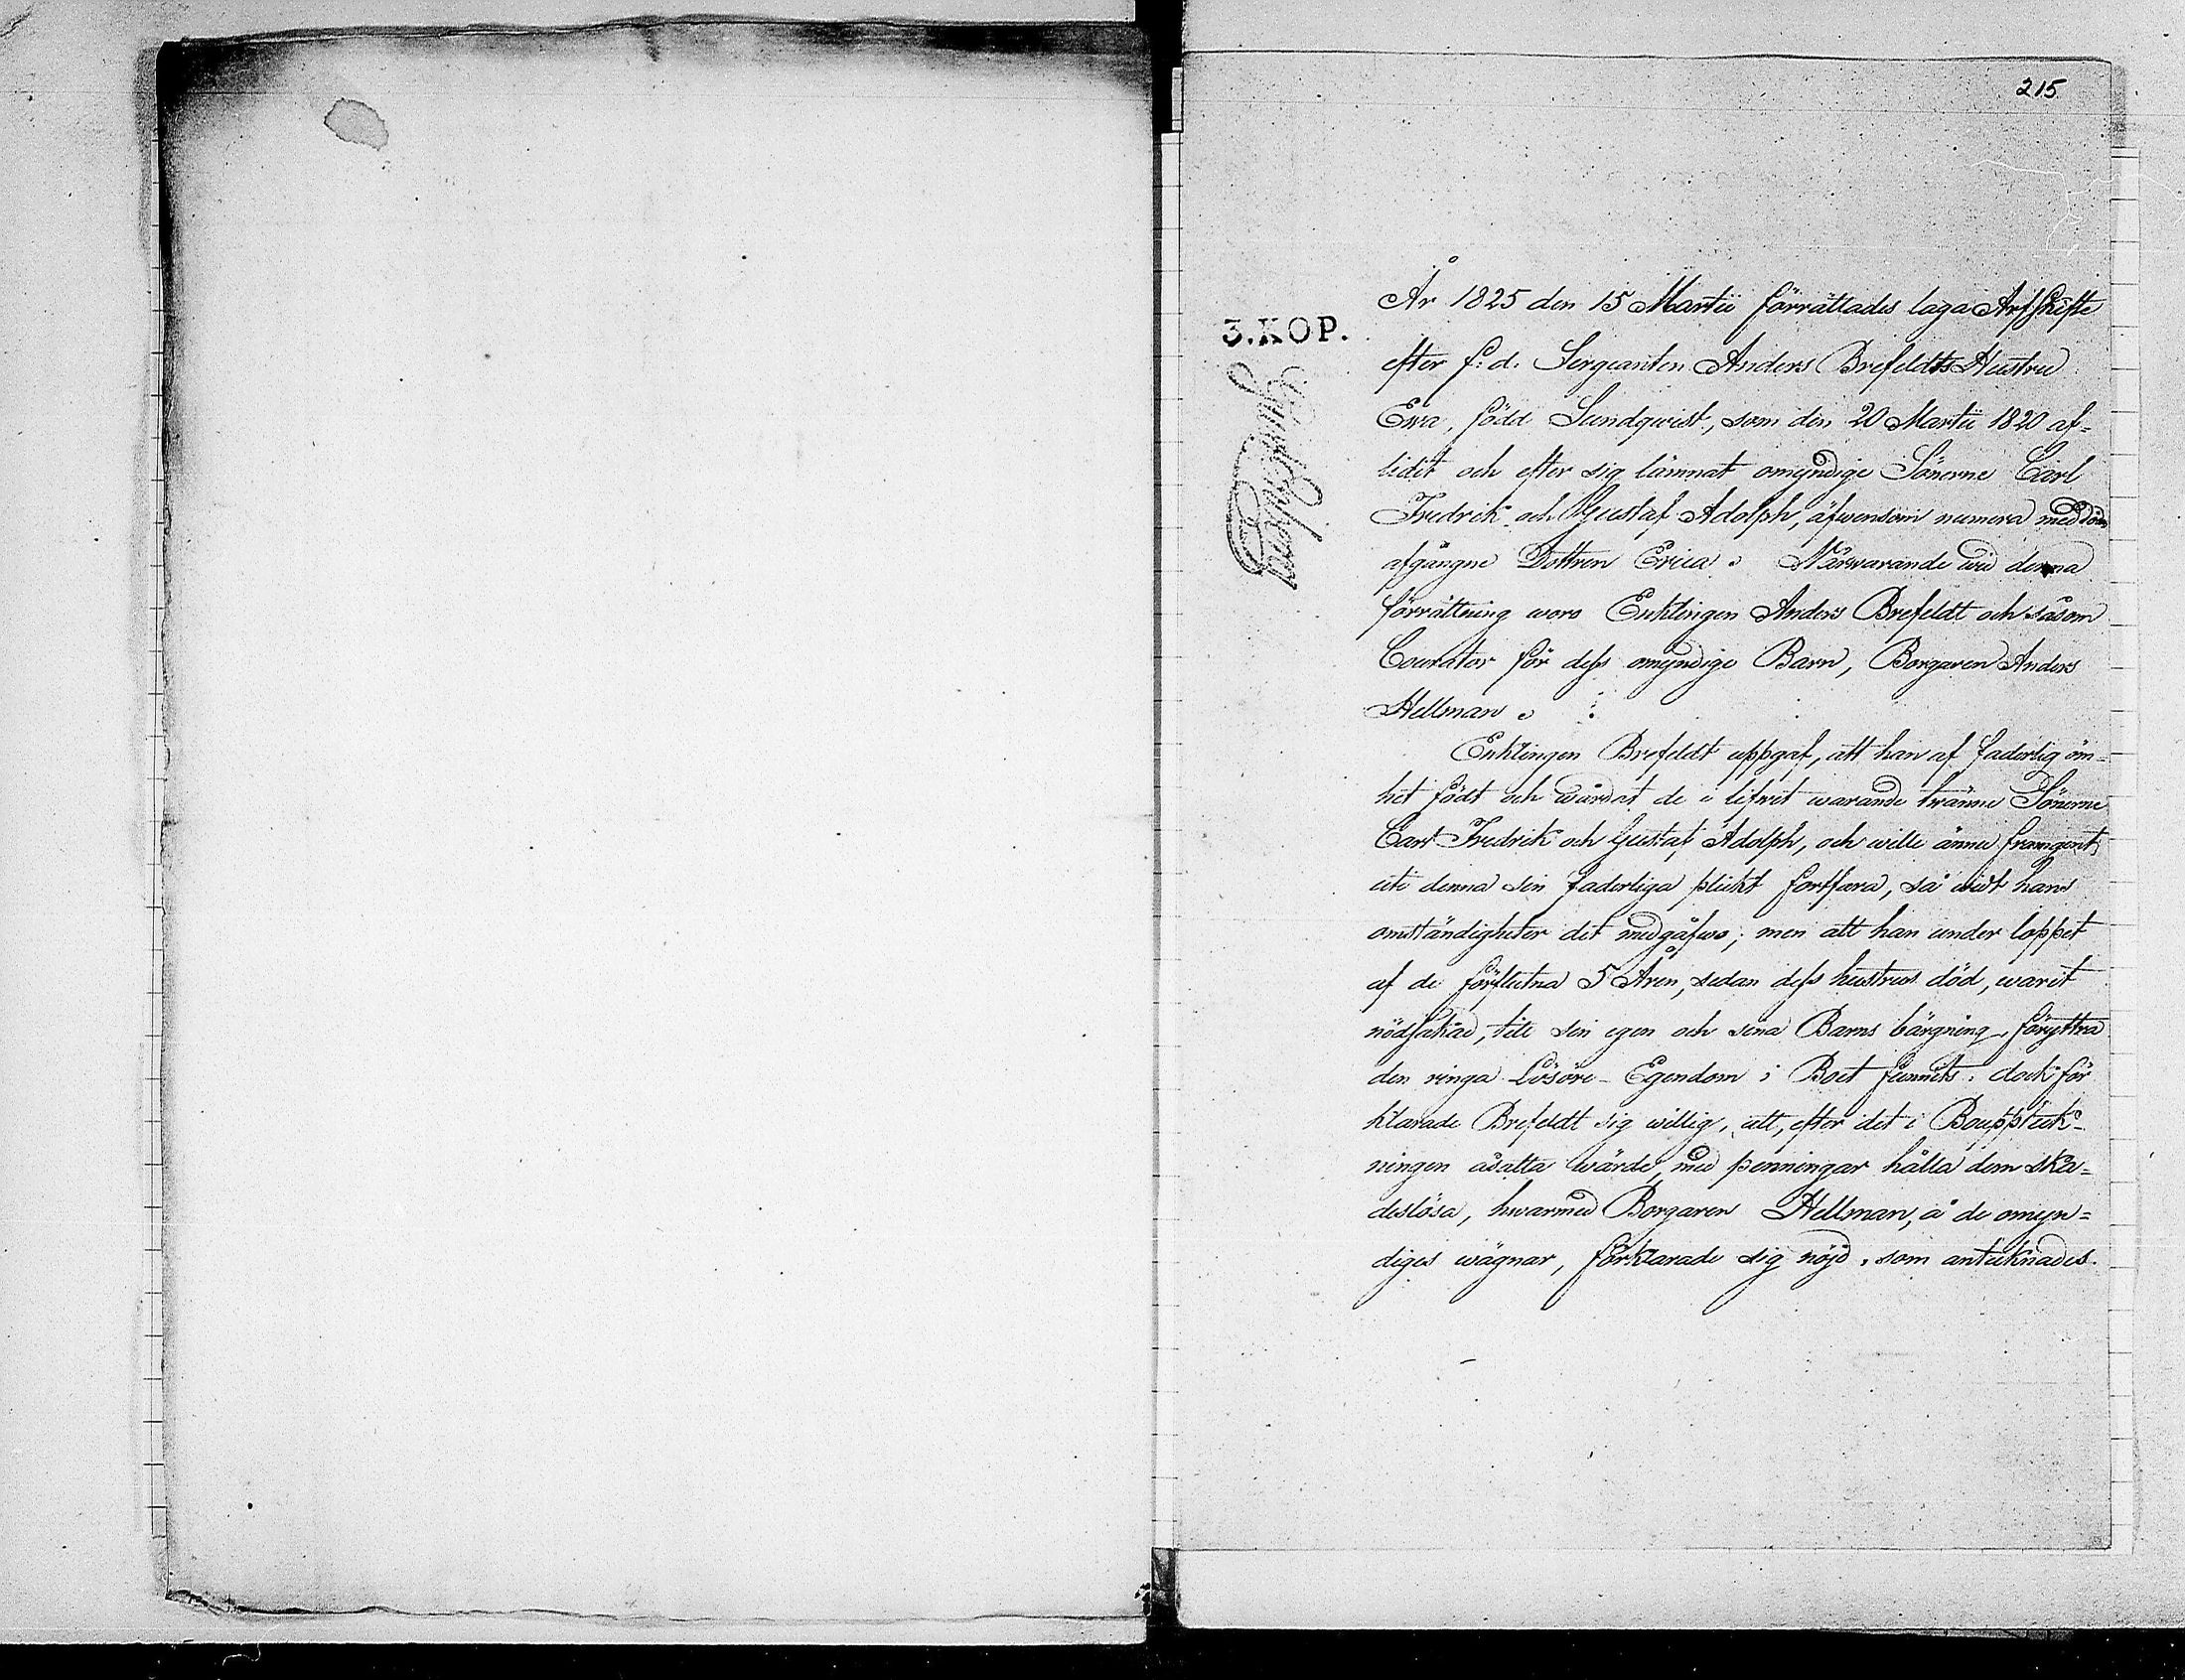 215.
År 1825 den 15 Martii förrättades laga Arfskifte
3.KOP.
efter f. d. Sergeanten Anders Brefeldts Hustru
Ewa, född Sundqwist, som den 20 Martii 1820 af=
lidit och efter sig lämnat omyndige Sönerne Carl
Fredrik och Gustaf Adolph, äfwensom numera med döden
afgångne Dottren Erica. Närwarande wid denna
förrättning woro Enklingen Anders Brefeldt och såsom
Courator för dess omyndige Barn, Borgaren Anders
Hellman.
Enklingen Brefeldt uppgaf, att han af faderlig öm=
het födt och wårdat de i lifwet warande twänne Sönerne
Carl Fredrik och Gustaf Adolph, och wille ännu framgent
uti denna sin faderliga plikt fortfara, så widt hans
omständigheter det medgåfwo; men att han under loppet
af de förflutna 5 Åren, sedan dess hustrus död, warit
nödsakad, till sin egen och sina Barns bärgning, föryttra
den ringa Lösöre-Egendom i Boet funnits: dock för
klarade Brefeldt sig willig, att, efter det i Boupptek=
ningen åsatta wärde, med penningar hålla dem ska=
deslösa, hwarmed Borgaren Hellman, å de omyn=
diges wägnar, förklarade sig nöjd, som antecknades.